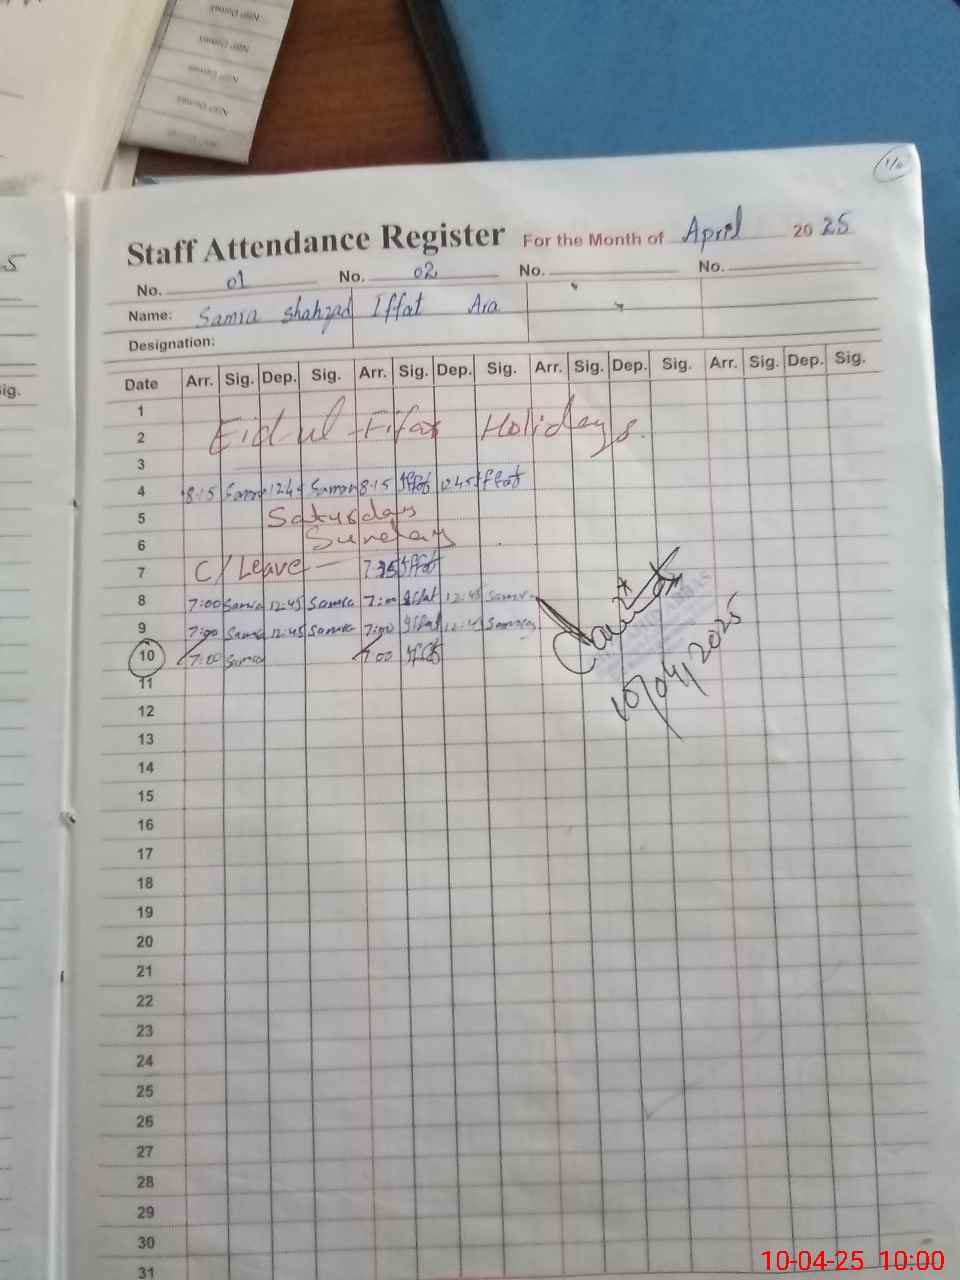 1/0
Staff Attendance Register For the Month of April 2025
No. 01 No. 02 No. No.
Name: Samra Shahzad Iffat Ara
Designation:
Date Arr. Sig. Dep. Sig. Arr. Sig. Dep. Sig. Arr. Sig. Dep. Sig. Arr. Sig. Dep. Sig.
1
2 Eid-ul-Fitar Holidays.
3
4 8:15 Samra 12:45 Samra 8:15 Iffat 12:45 Iffat
5 Saturday
6 Sunday
7 C/Leave — Iffat
8 7:00 Samra 12:45 Samra 7:00 Iffat 12:45 Samra
9 7:00 Samra 12:45 Samra 7:00 Iffat 12:45 Samra
10 7:00 Samra 7:00 Iffat
10/04/2025
11
12
13
14
15
16
17
18
19
20
21
22
23
24
25
26
27
28
29
30
31
5
Sig.
10-04-25 10:00